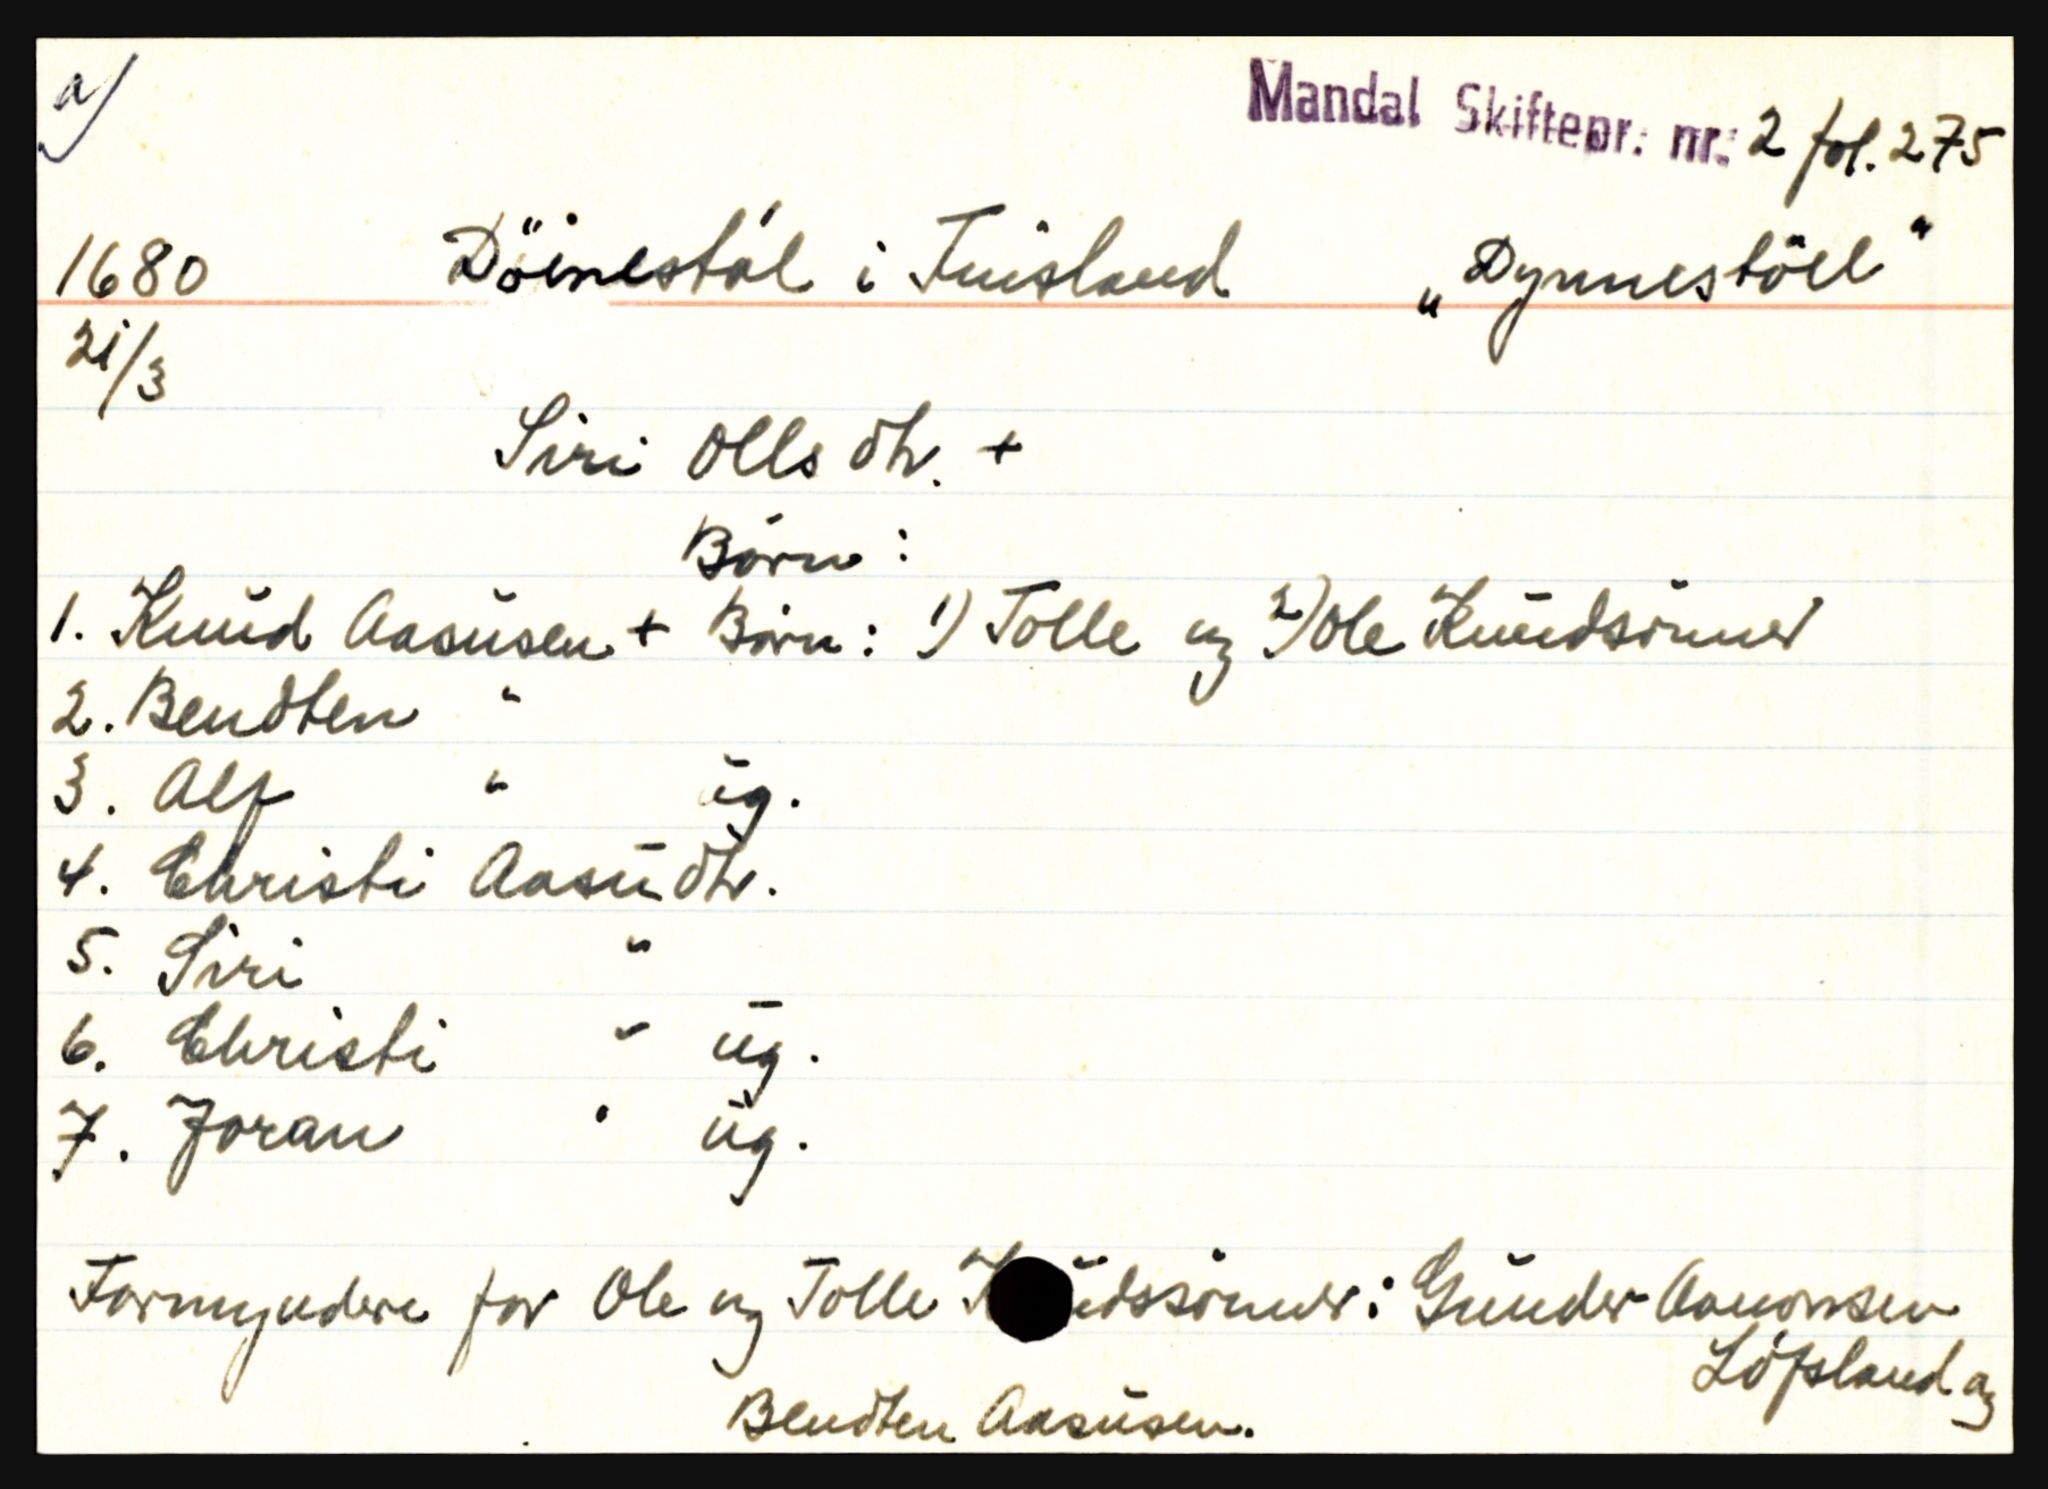 a)
Mandal Skiftepr. nr. 2 fol. 275
1680 Döinestøl i Finsland „Dynnestöel"
21/3
Siri Olls dtr. +
Børn :
1. Knud Aasusen + Børn : 1) Tolle og 2) Ole Knudsønner
2. Bendten "
3. Alf " ug.
4. Christi Aasudtr.
5. Siri "
6. Christi " ug.
7. Joran " ug.
Formyndere for Ole og Tolle K udssønner : Gunder Aanonsen
Löfsland og
Bendten Aasusen.